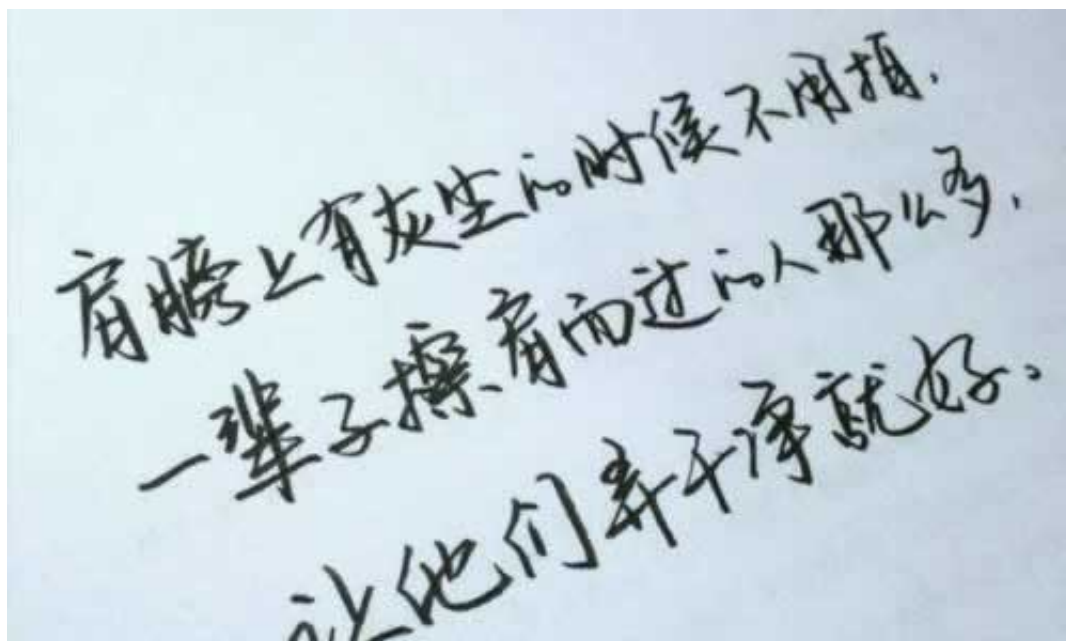 肩膀上有灰尘的时候不用拍,
一辈子擦肩而过的人那么多,
让他们弄干净就好。